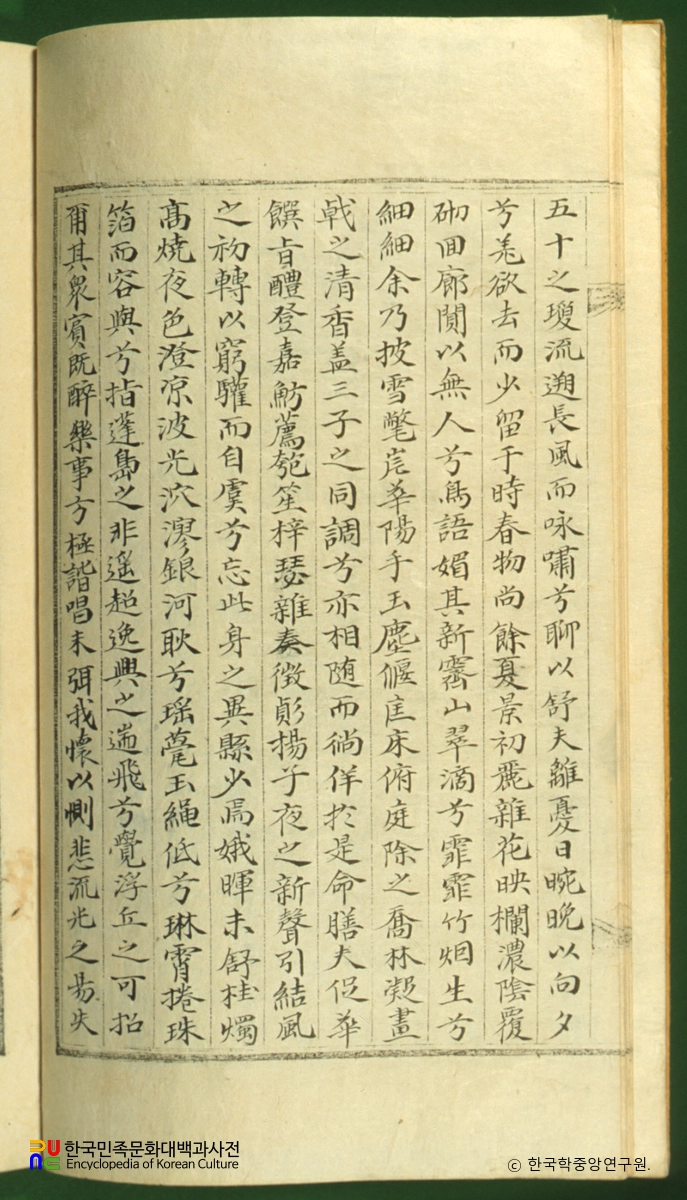 五十之瓊流遡長風而咏嘯兮聊以舒夫離憂日晼晚以向夕
兮羌欲去而少留于時春物尚餘夏景初麗雜花映欄濃陰覆
砌回廊闃以無人兮鳥語媚其新霽山翠滴兮霏霏竹烟生兮
細細余乃披雪氅岸華陽手玉麈偃匡床俯庭除之喬林凝畫
戟之清香盖三子之同調兮亦相随而徜徉於是命膳夫促華
饌旨醴登嘉魴薦匏笙梓瑟雜奏徵郧揚子夜之新聲引結風
之初轉以窮驩而自虞兮忘此身之異縣少焉娥暉未舒桂燭
高燒夜色澄凉波光泬漻銀河耿兮瑶甍玉繩低兮琳霄捲珠
箔而容與兮指蓬島之非遥超逸興之遄飛兮覺浮丘之可招
爾其衆賓既醉樂事方極諧唱未弭我懷以惻悲流光之昜失
한국민족문화대백과사전
Encyclopedia of Korean Culture
ⓒ 한국학중앙연구원.